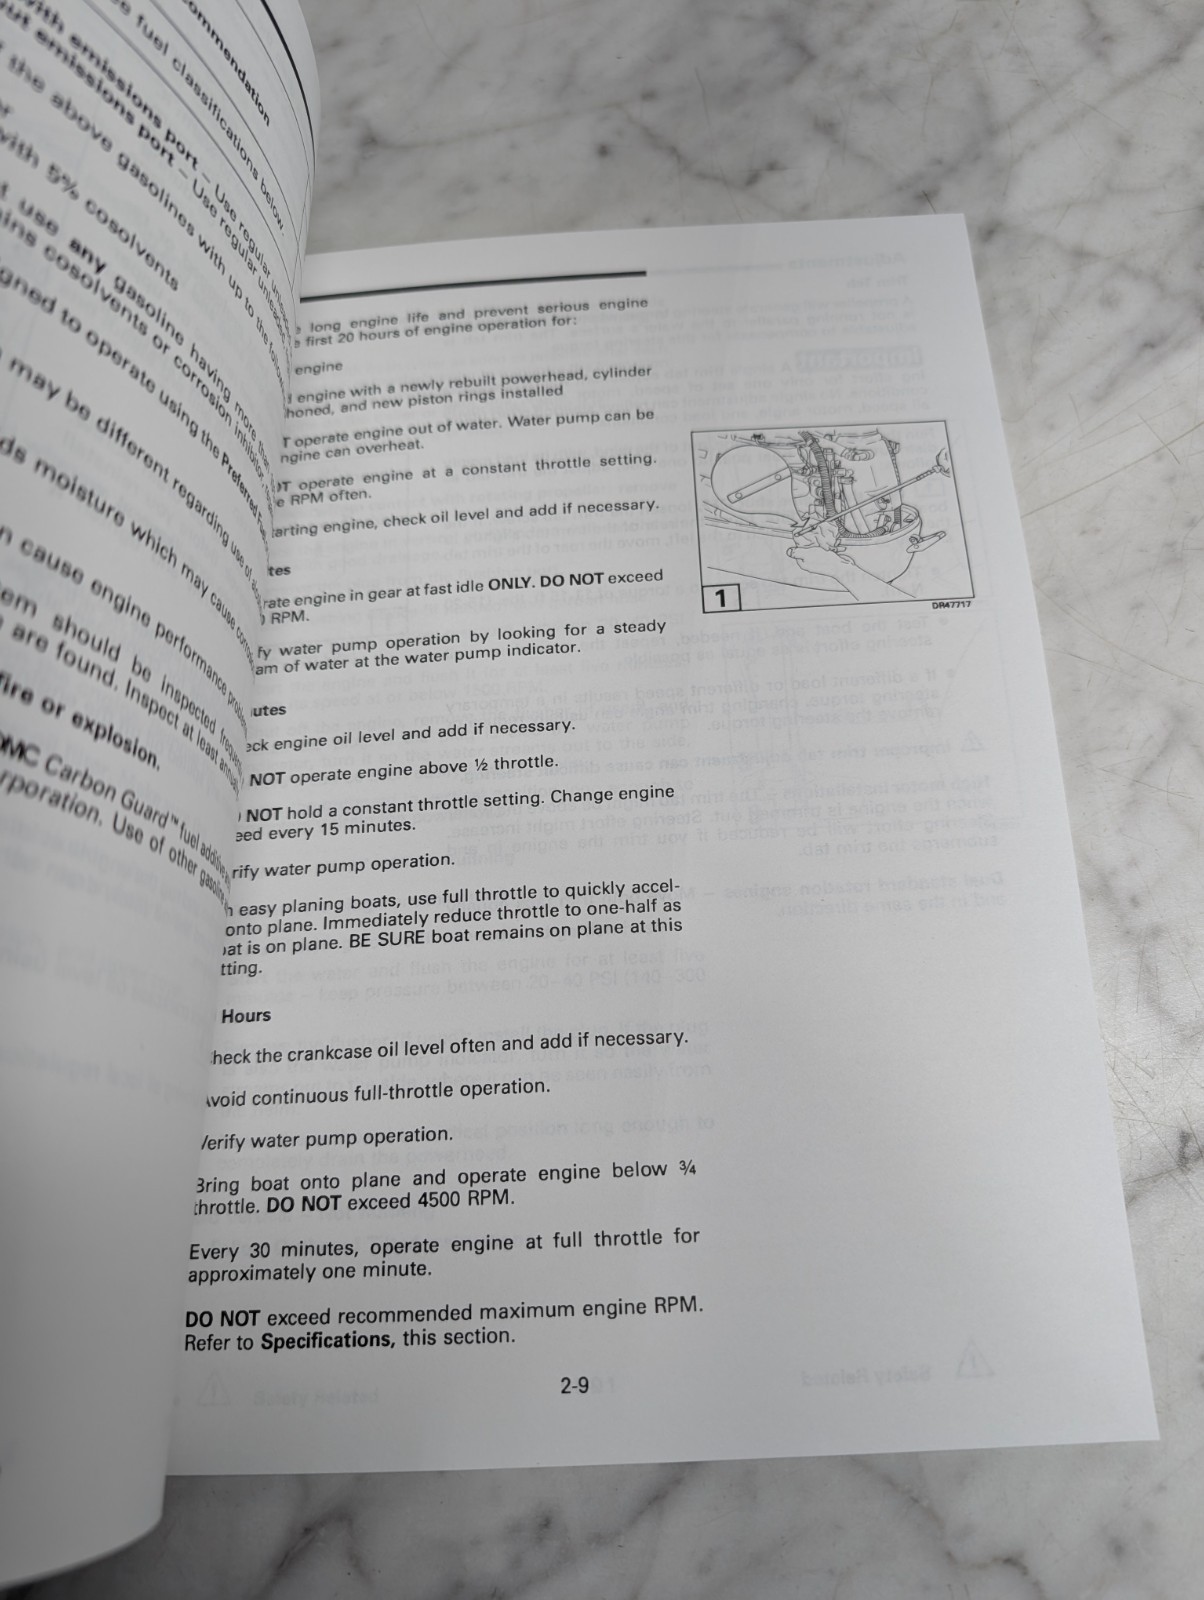 ommendation
fuel classifications below.
with emissions port – Use regular
out emissions port – Use regular
the above gasolines with up to the
with 5% cosolvents
use any gasoline having more than
cosolvents or corrosion inhibitor
gned to operate using the Preferred Fuel
may be different regarding use of
ds moisture which may cause
n cause engine performance
em should be inspected
are found. Inspect at least
fire or explosion.
OMC Carbon Guard™ fuel additive
rporation. Use of other
long engine life and prevent serious engine
first 20 hours of engine operation for:
engine
engine with a newly rebuilt powerhead, cylinder
honed, and new piston rings installed
T operate engine out of water. Water pump can be
ngine can overheat.
OT operate engine at a constant throttle setting.
e RPM often.
tarting engine, check oil level and add if necessary.
tes
rate engine in gear at fast idle ONLY. DO NOT exceed
RPM.
fy water pump operation by looking for a steady
am of water at the water pump indicator.
utes
eck engine oil level and add if necessary.
NOT operate engine above ½ throttle.
NOT hold a constant throttle setting. Change engine
eed every 15 minutes.
rify water pump operation.
h easy planing boats, use full throttle to quickly accel-
onto plane. Immediately reduce throttle to one-half as
oat is on plane. BE SURE boat remains on plane at this
tting.
Hours
heck the crankcase oil level often and add if necessary.
Avoid continuous full-throttle operation.
Verify water pump operation.
Bring boat onto plane and operate engine below ¾
throttle. DO NOT exceed 4500 RPM.
Every 30 minutes, operate engine at full throttle for
approximately one minute.
DO NOT exceed recommended maximum engine RPM.
Refer to Specifications, this section.
2-9
1
DR47717